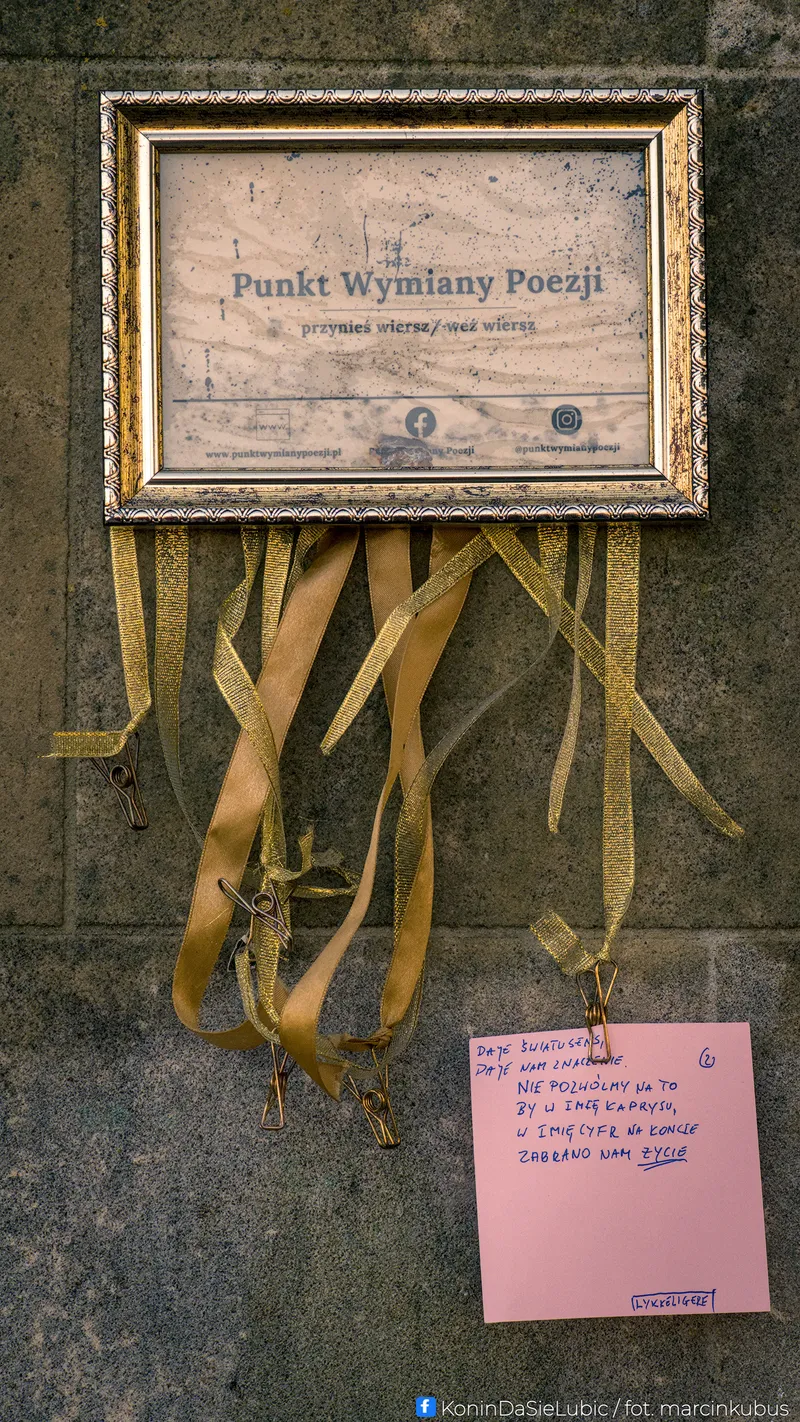 Punkt Wymiany Poezji
przynieś wiersz/weź wiersz
www
www.punktwymianypoezji.pl
Poezji
@punktwymianypoezji
DAJE ŚWIATU SENS,
DAJE NAM ZNACZENIE.
2
NIE POZWÓLMY NA TO
BY W IMIĘ KAPRYSU,
W IMIĘ CYFR NA KONCIE
ZABRANO NAM ŻYCIE
LYKKELIGERE
KoninDaSieLubic / fot. marcinkubus